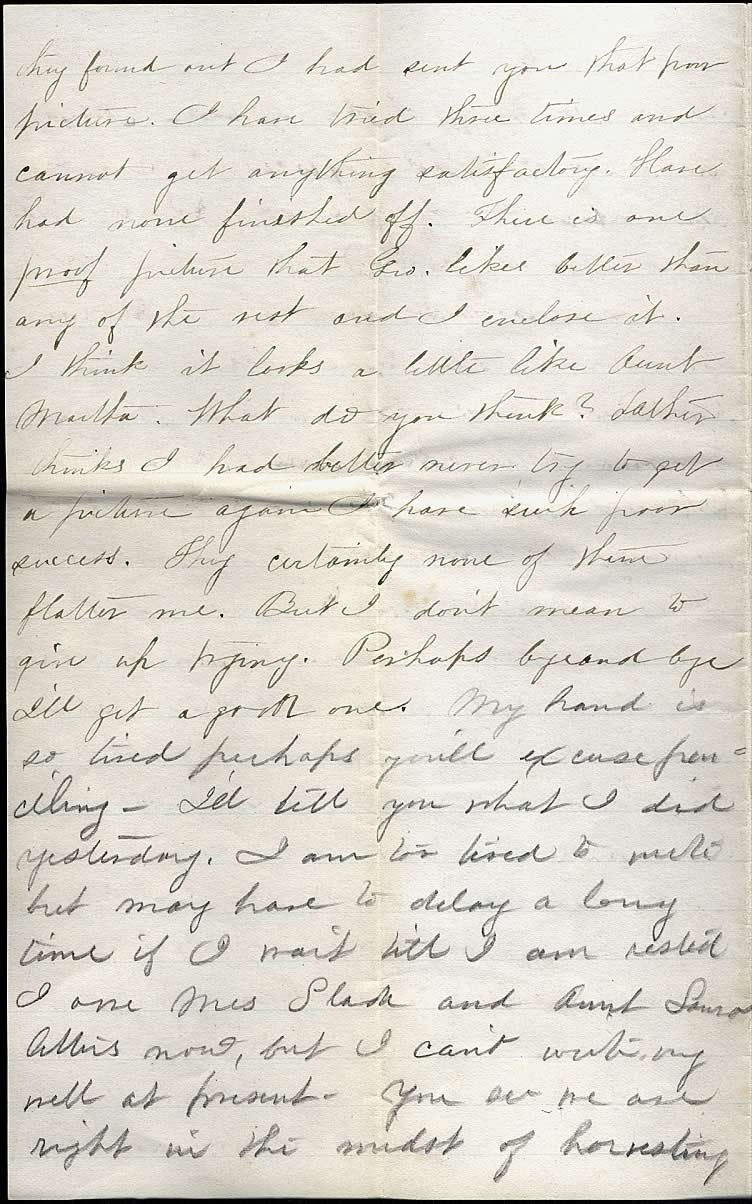 they found out I had sent you that poor
picture. I have tried three times and
cannot get anything satisfactory. Have
had none finished off. There is one
proof picture that Geo. likes better than
any of the rest and I enclose it.
I think it looks a little like Aunt
Martha. What do you think? Father
thinks I had better never try to get
a picture again I have such poor
success. They certainly none of them
flatter me. But I don't mean to
give up trying. Perhaps bye and bye
I'll get a good one. My hand is
so tired perhaps you'll excuse pen=
ciling — I'll tell you what I did
yesterday. I am too tired to write
but may have to delay a long
time if I wait till I am rested
I owe Mrs Slade and Aunt Laura
letters now, but I can't write very
well at present - You see we are
right in the midst of harvesting